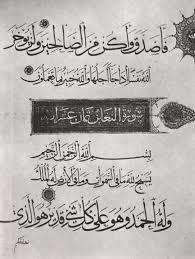 فاصدق واكن من الصالحين ولن يؤخر
الله نفسا اذا جا اجلها والله خبير بما تعملون
سورة التغابن ثمان عشر اية
بسم الله الرحمن الرحيم
يسبح لله ما في السموات وما في الارض له الملك
وله الحمد وهو على كل شئ قدير هو الذي